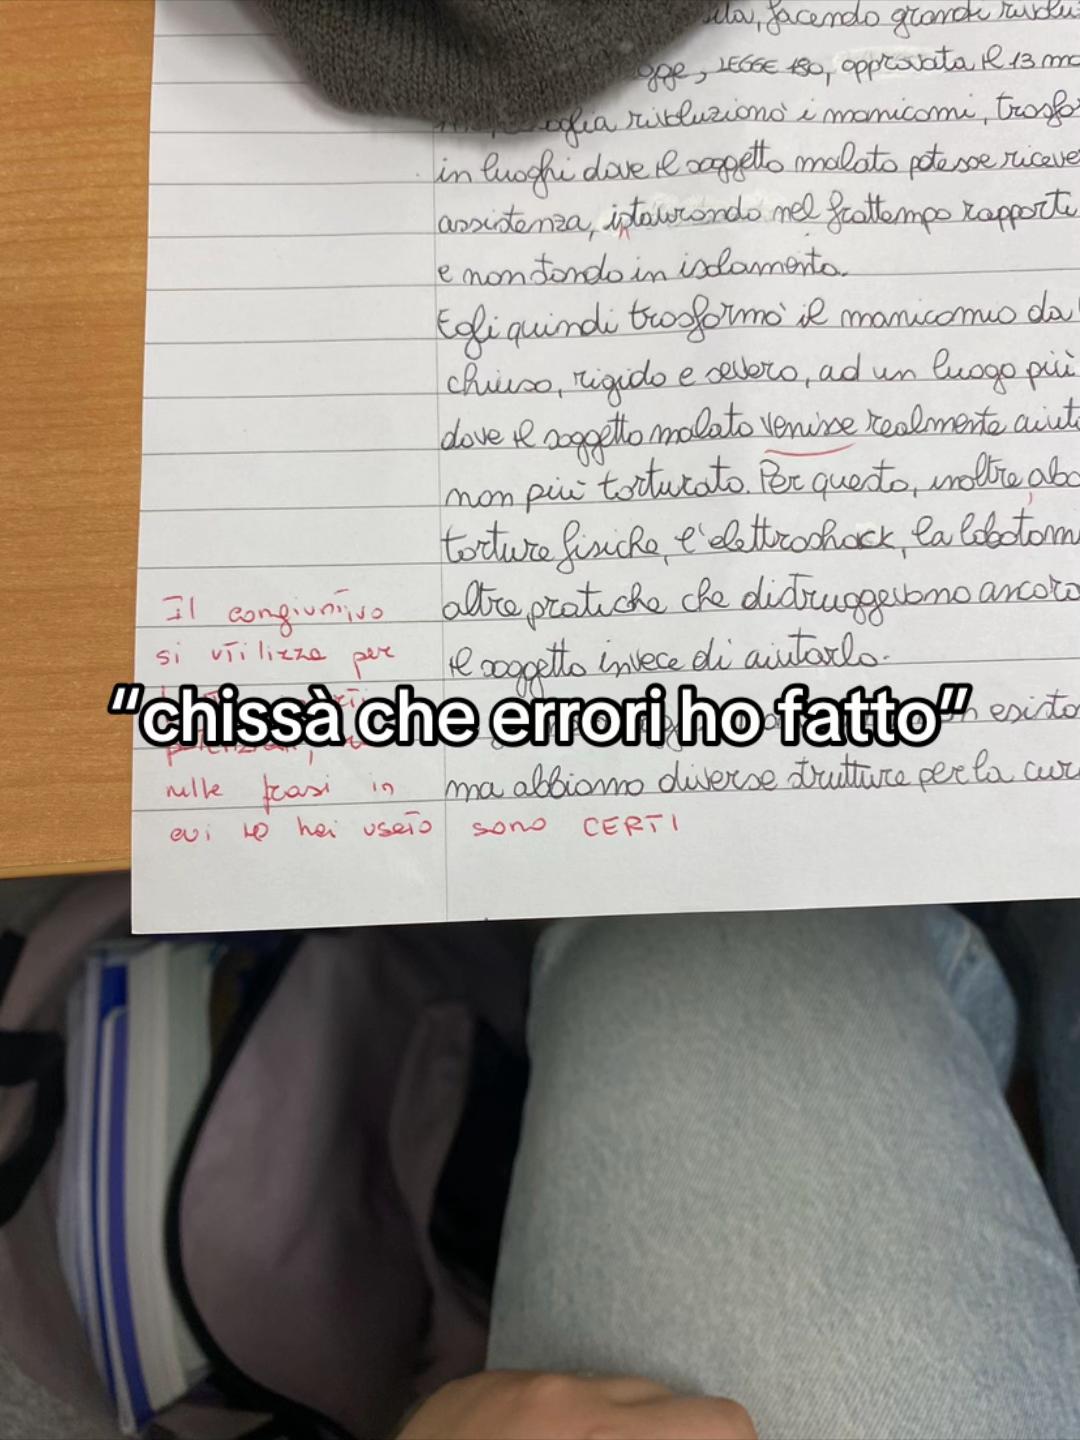 facendo grande
LEGGE 180, approvata il 13
rivoluzionò i manicomi,
in luoghi dove il soggetto malato potesse
assistenza, istaurando nel frattempo rapporti
e non stando in isolamento.
Egli quindi trasformò il manicomio da
chiuso, rigido e severo, ad un luogo più
dove il soggetto malato venisse realmente
non più torturato. Per questo, inoltre
torture fisiche, l'elettroshock, la
altre pratiche che distruggevano ancora
il soggetto invece di aiutarlo.
ma abbiamo diverse strutture per la
Il congiuntivo
si utilizza per
nelle frasi in
cui lo hai usato sono CERTI
"chissà che errori ho fatto"